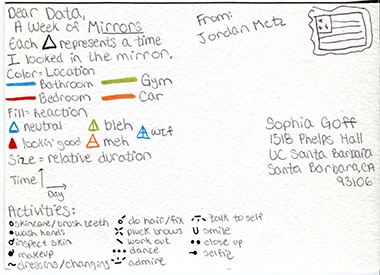 Dear Data,
A Week of Mirrors
Each △ represents a time
I looked in the mirror.
Color = Location
Bathroom Gym
Bedroom Car
Fill = Reaction
neutral bleh wtf
lookin' good meh
Size = relative duration
Time
Day
Activities:
skincare/brush teeth
wash hands
inspect skin
makeup
dressing/changing
do hair/fix
pluck brows
work out
dance
admire
talk to self
smile
close up
selfie
From:
Jordan Metz
Sophia Goff
1518 Phelps Hall
UC Santa Barbara
Santa Barbara, CA
93106